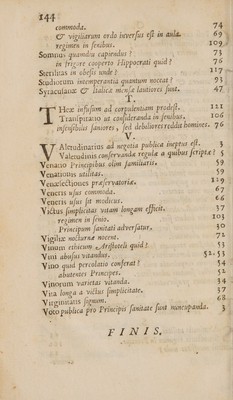 144
commoda. 74
& vigiliarum ordo inversus est in aula. 69
regimen in senibus. 109
Somnus quamdiu capiendus? 73
in frigore cooperto Hippocrati quid? 76
Sterilitas in obesis unde? 117
Studiorum intemperantia quantum noceat? 93
Syracusanæ & Italicæ mensæ lautieres sunt. 47
T.
THeæ infusum ad corpulentiam prodest. 111
Transpiratio ut consideranda in senibus. 106
insensibilis saniores, sed debiliores reddit homines. 76
V.
VAletudinarius ad negotia publica ineptus est. 3
Valetudinis conservandæ regulæ a quibus scriptæ? 5
Venatio Principibus olim familiaris. 59
Venationis utilitas. 59
Venæsectiones præservatoriæ. 129
Veneris usus commoda. 67
Veneris usus sit modicus. 66
Victus simplicitas vitam longam efficit. 37
regimen in senio. 103
Principum sanitati adversatur. 30
Vigiliæ nocturnæ nocent. 72
Vinum ethicum Aristoteli quid? 53
Vini abusus vitandus. 52. 53
Vino quid percolatio conferat? 54
abutentes Principes. 52
Vinorum varietas vitanda. 34
Vita longa a victus simplicitate. 37
Virginitatis signum. 68
Voto publica pro Principis sanitate sunt nuncupanda. 3
FINIS.